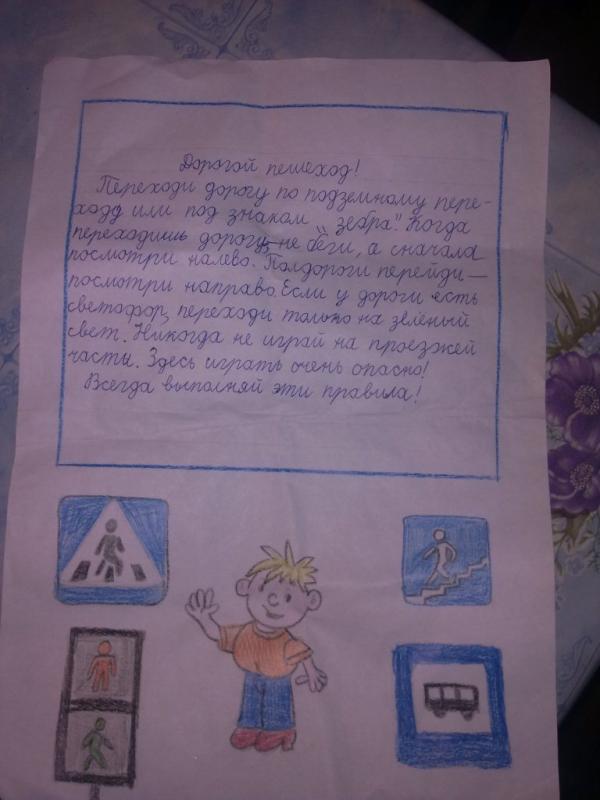 Дорогой пешеход!
Переходи дорогу по подземному пере-
ходу или под знаком „зебра". Когда
переходишь дорогу не беги, а сначала
посмотри налево. Полдороги перейди —
посмотри направо. Если у дороги есть
светофор, переходи только на зелёный
свет. Никогда не играй на проезжей
части. Здесь играть очень опасно!
Всегда выполняй эти правила!